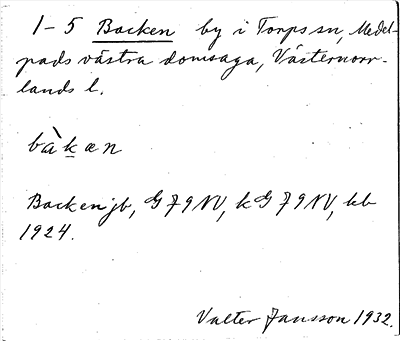 1-5 Backen by i Torps sn, Medel-
pads västra domsaga, Västernorr-
lands l.
bàkæn
Backen jb, G 79 NV, kG 79 NV, kb
1924.
Valter Jansson 1932.